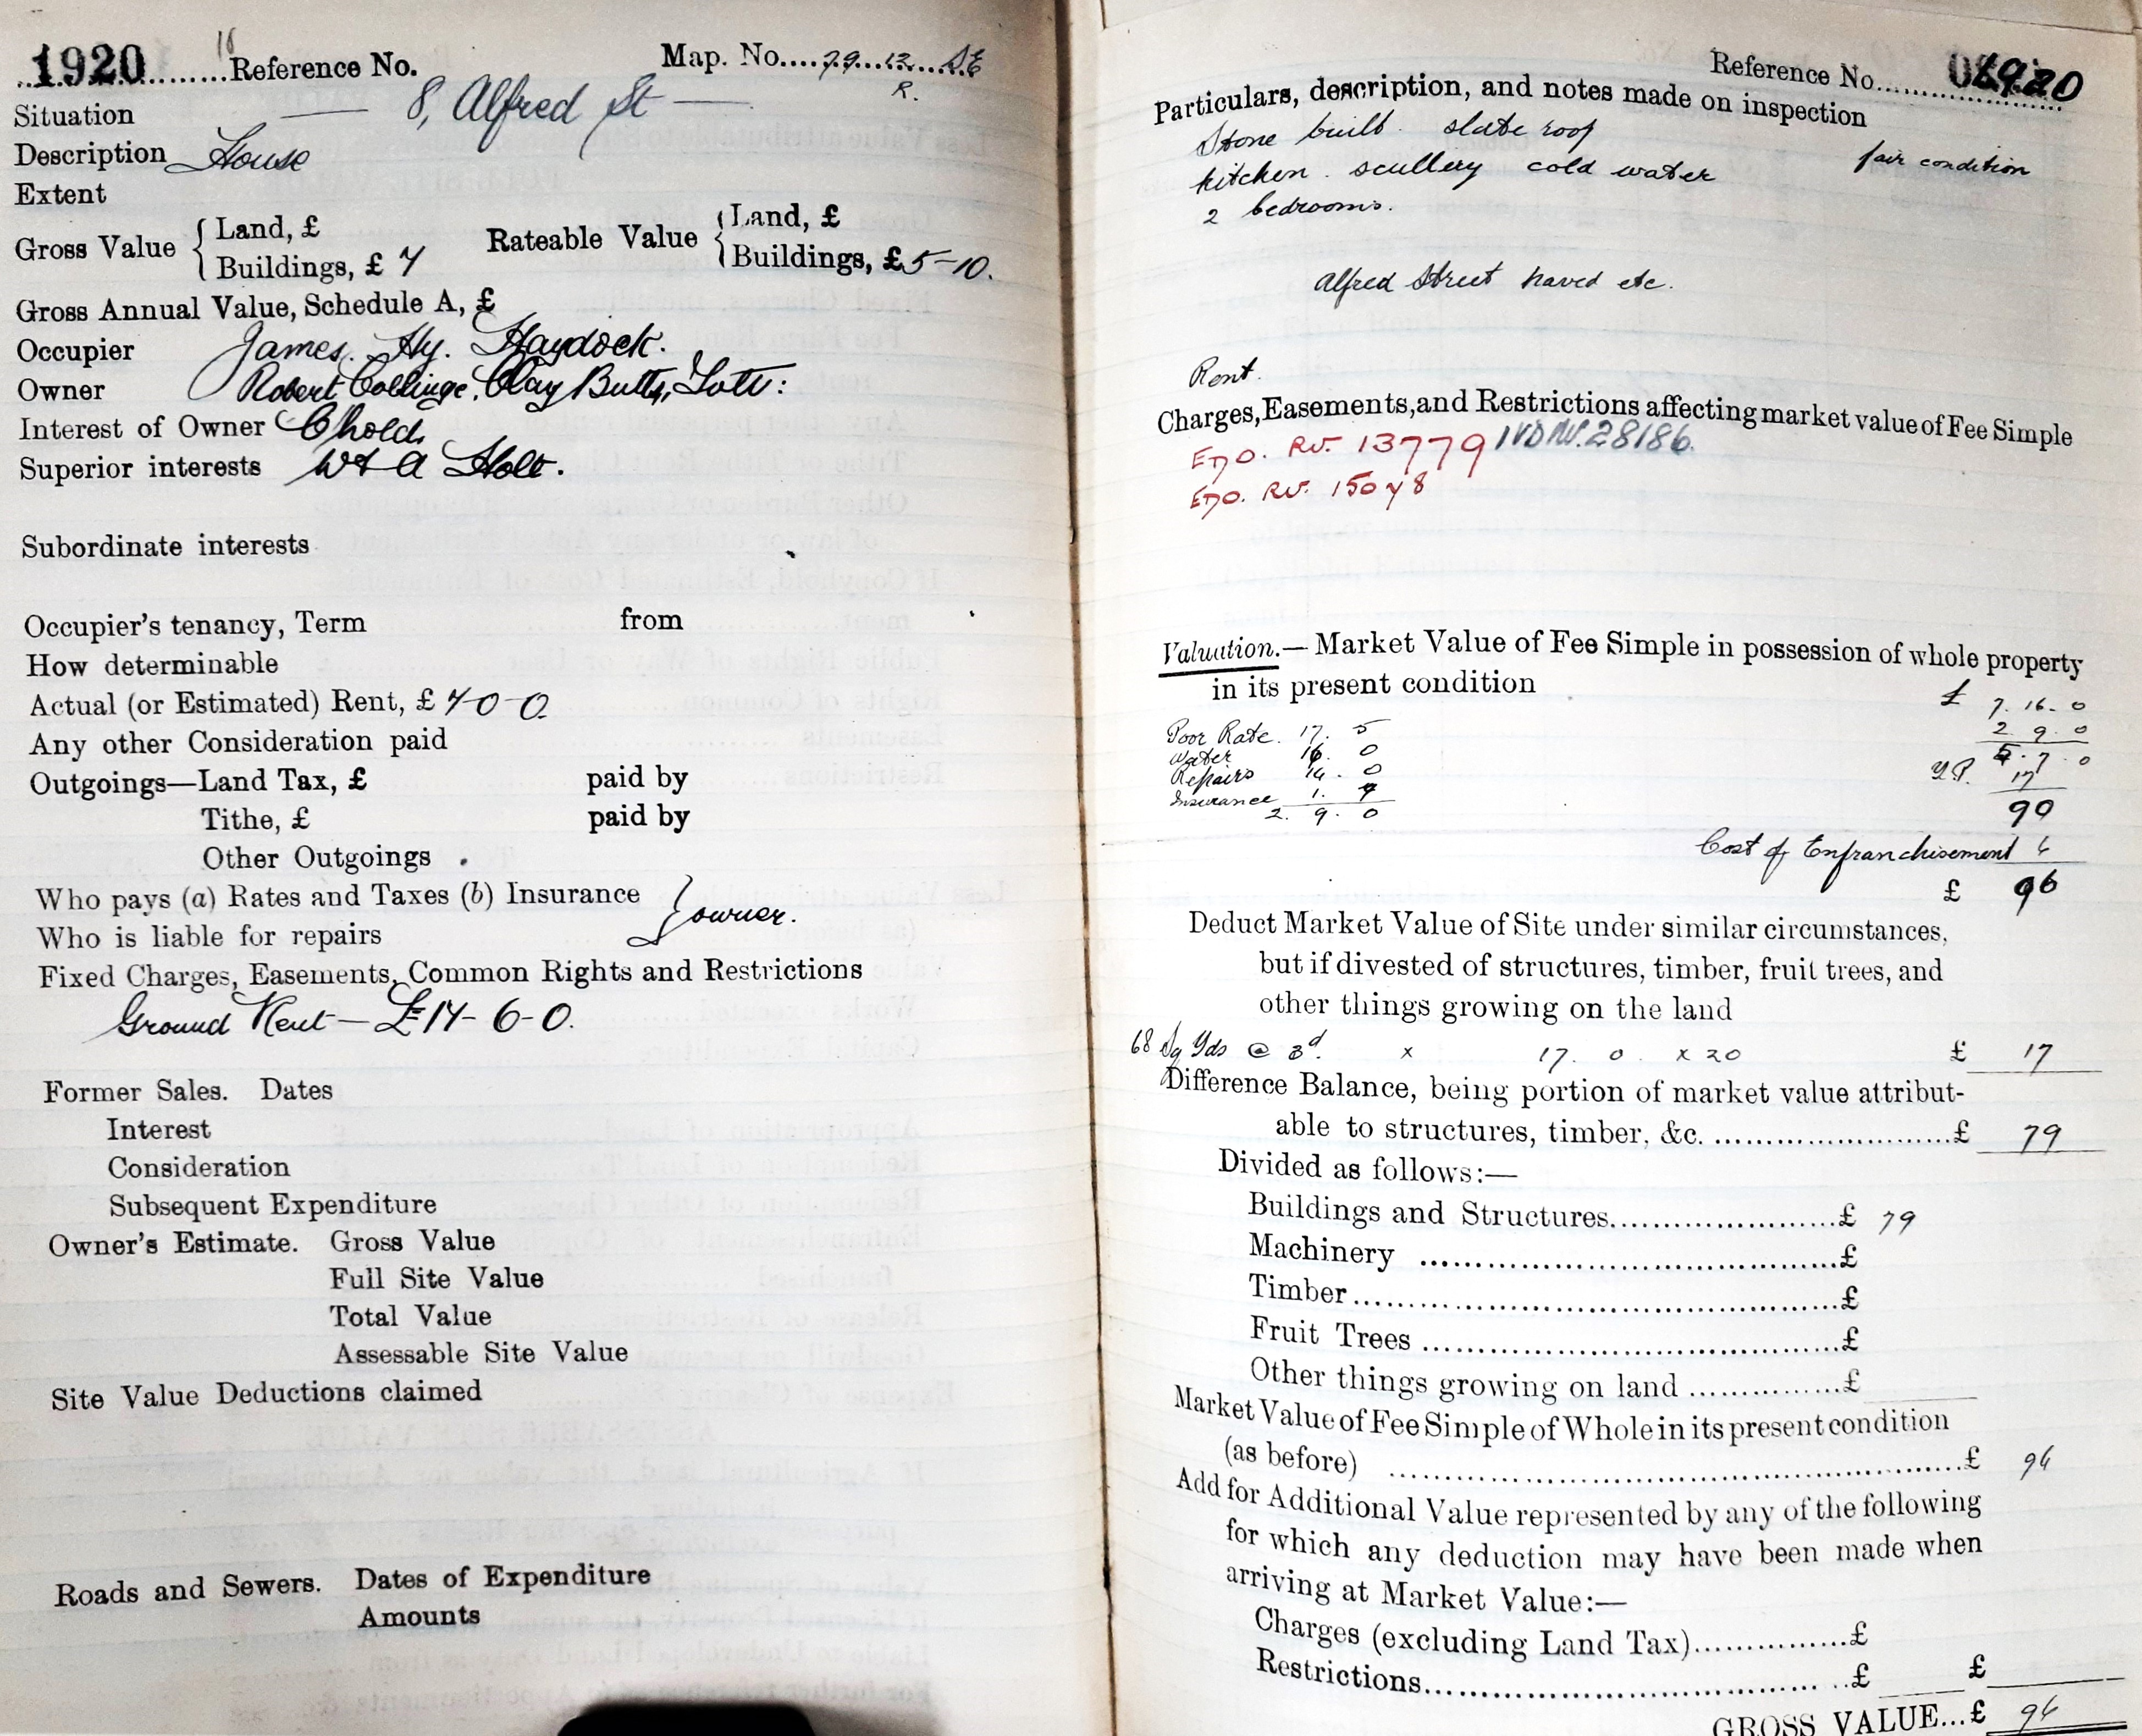 1920 Reference No. Map. No. 79.12. SE
R.
Situation — 8, Alfred St —
Description House
Extent
Gross Value { Land, £ Rateable Value { Land, £
Buildings, £ 7 Buildings, £ 5-10.
Gross Annual Value, Schedule A, £
Occupier James. Hy. Haydock.
Owner Robert Collinge, Clay Butts, Lott:
Interest of Owner Chold.
Superior interests W & A Holt.
Subordinate interests
Occupier's tenancy, Term from
How determinable
Actual (or Estimated) Rent, £ 7-0-0.
Any other Consideration paid
Outgoings—Land Tax, £ paid by
Tithe, £ paid by
Other Outgoings
Who pays (a) Rates and Taxes (b) Insurance } owner.
Who is liable for repairs
Fixed Charges, Easements, Common Rights and Restrictions
Ground Rent — £14-6-0.
Former Sales. Dates
Interest
Consideration
Subsequent Expenditure
Owner's Estimate. Gross Value
Full Site Value
Total Value
Assessable Site Value
Site Value Deductions claimed
Roads and Sewers. Dates of Expenditure
Amounts
Reference No. 1920
Particulars, description, and notes made on inspection
Stone built. slate roof
fair condition
kitchen. scullery cold water
2 bedrooms.
Alfred Street paved etc.
Rent.
Charges, Easements, and Restrictions affecting market value of Fee Simple
EDO. RV. 13779 IVD RV. 28186.
EDO. RV. 15078
Valuation.— Market Value of Fee Simple in possession of whole property
in its present condition
£ 7. 16. 0
Poor Rate. 17. 5 2. 9. 0
Water 16. 0 5. 7. 0
Repairs 14. 0 Y.P. 17
Insurance 1. 7 90
2. 9. 0
Cost of Enfranchisement 6
£ 96
Deduct Market Value of Site under similar circumstances,
but if divested of structures, timber, fruit trees, and
other things growing on the land
68 Sq Yds @ 3d. x 17. 0. x 20 £ 17
Difference Balance, being portion of market value attribut-
able to structures, timber, &c. £ 79
Divided as follows:—
Buildings and Structures £ 79
Machinery £
Timber £
Fruit Trees £
Other things growing on land £
Market Value of Fee Simple of Whole in its present condition
(as before) £ 96
Add for Additional Value represented by any of the following
for which any deduction may have been made when
arriving at Market Value:—
Charges (excluding Land Tax) £
Restrictions £ £
GROSS VALUE...£ 96